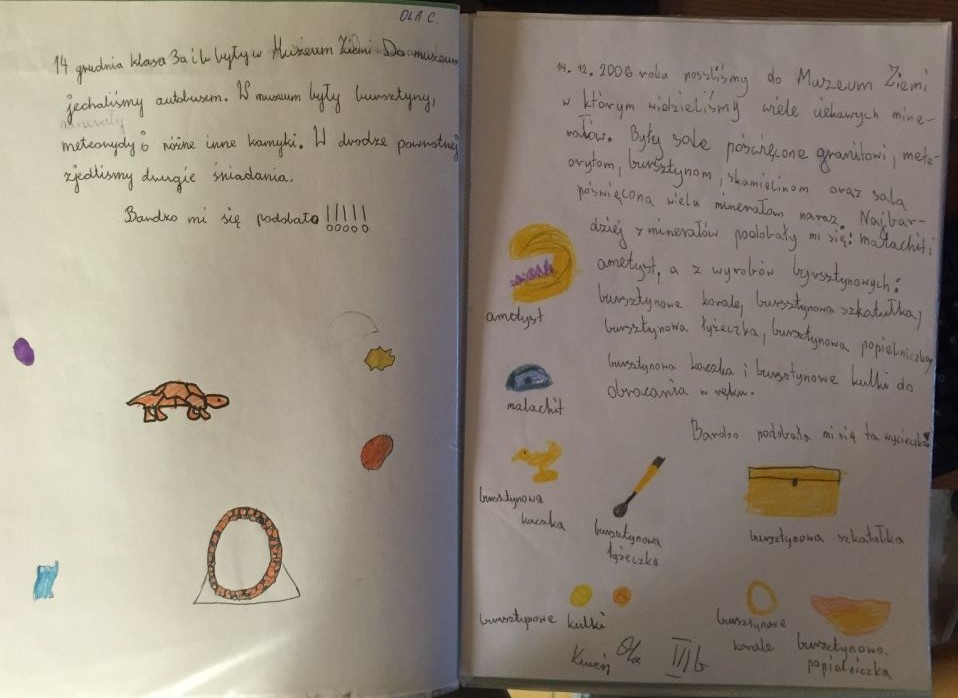 OLA C.
14 grudnia klasa 3a i b były w Muzeum Ziemi Do muzeum
jechaliśmy autobusem. W muzeum były bursztyny,
minerały
meteorydy i różne inne kamyki. W drodze powrotnej
zjedliśmy drugie śniadania.
Bardko mi się podobało !!!!!
14. 12. 2006 roku poszliśmy do Muzeum Ziemi
w którym widzieliśmy wiele ciekawych mine-
rałów. Były sale poświęcone granitowi, mete-
orytom, bursztynom, skamielinom oraz sala
poświęcona wielu minerałom naraz. Najbar-
dziej z minerałów podobały mi się: malachit i
ametyst, a z wyrobów byrsztynowych:
bursztynowe korale, bursztynowa szkatułka,
bursztynowa łyżeczka, bursztynowa popielniczka,
bursztynowa kaczka i bursztynowe kulki do
obracania w ręku.
Bardzo podobała mi się ta wycieczka.
ametyst
malachit
bursztynowa
kaczka
bursztynowa
łyżeczka
bursztynowa szkatułka
bursztynowe kulki
bursztynowe
korale
bursztynowa
popielniczka
Ola III b